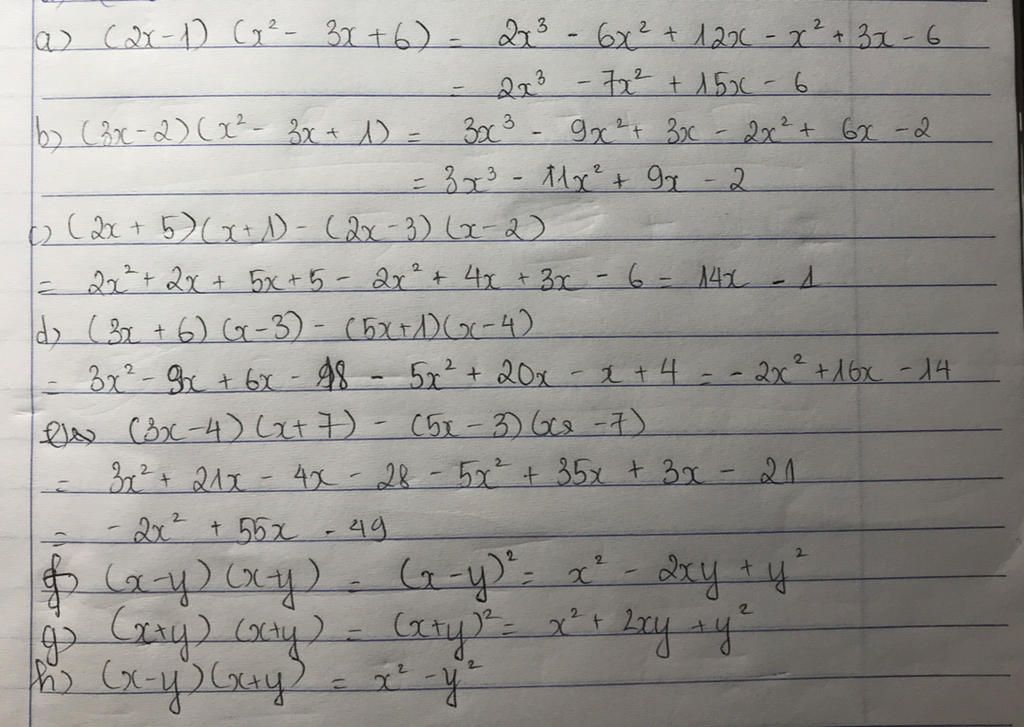 a) (2x-1) (x² - 3x + 6) = 2x³ - 6x² + 12x - x² + 3x - 6
= 2x³ - 7x² + 15x - 6
b) (3x-2) (x² - 3x + 1) = 3x³ - 9x² + 3x - 2x² + 6x - 2
= 3x³ - 11x² + 9x - 2
c) (2x + 5) (x+1) - (2x-3) (x-2)
= 2x² + 2x + 5x + 5 - 2x² + 4x + 3x - 6 = 14x - 1
d) (3x + 6) (x-3) - (5x+1) (x-4)
= 3x² - 9x + 6x - 18 - 5x² + 20x - x + 4 = - 2x² + 16x - 14
e) (3x-4) (x+7) - (5x-3) (x -7)
= 3x² + 21x - 4x - 28 - 5x² + 35x + 3x - 21
= - 2x² + 55x - 49
f) (x-y) (x-y) = (x-y)² = x² - 2xy + y²
g) (x+y) (x+y) = (x+y)² = x² + 2xy + y²
h) (x-y) (x+y) = x² - y²